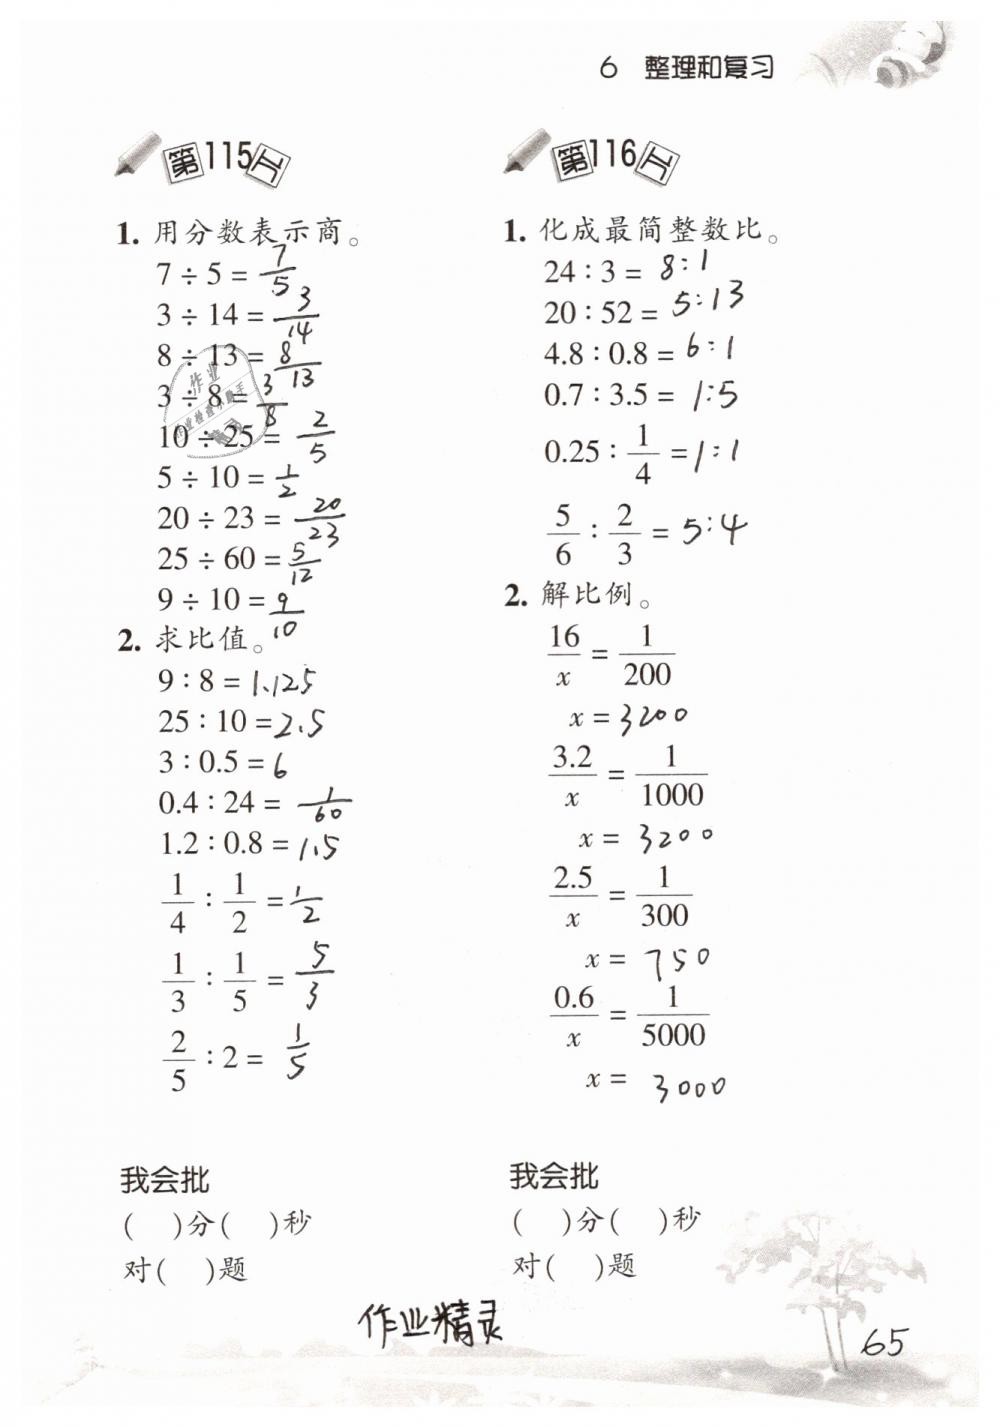 6 整理和复习
第115天
1. 用分数表示商。
7 ÷ 5 = 7/5
3 ÷ 14 = 3/14
8 ÷ 13 = 8/13
3 ÷ 8 = 3/8
10 ÷ 25 = 2/5
5 ÷ 10 = 1/2
20 ÷ 23 = 20/23
25 ÷ 60 = 5/12
9 ÷ 10 = 9/10
2. 求比值。
9 : 8 = 1.125
25 : 10 = 2.5
3 : 0.5 = 6
0.4 : 24 = 1/60
1.2 : 0.8 = 1.5
1/4 : 1/2 = 1/2
1/3 : 1/5 = 5/3
2/5 : 2 = 1/5
我会批
( )分( )秒
对( )题
第116天
1. 化成最简整数比。
24 : 3 = 8:1
20 : 52 = 5:13
4.8 : 0.8 = 6:1
0.7 : 3.5 = 1:5
0.25 : 1/4 = 1:1
5/6 : 2/3 = 5:4
2. 解比例。
16/x = 1/200
x = 3200
3.2/x = 1/1000
x = 3200
2.5/x = 1/300
x = 750
0.6/x = 1/5000
x = 3000
我会批
( )分( )秒
对( )题
作业精灵
65
作业